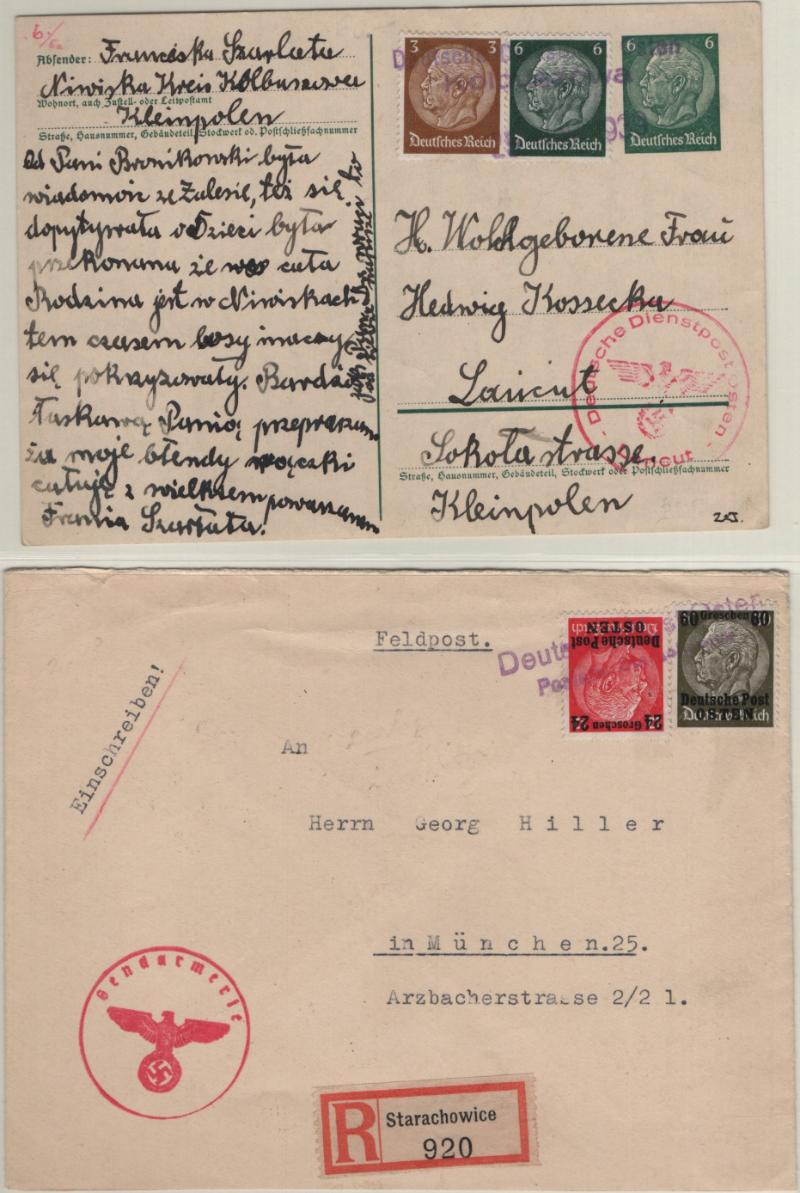 Absender: Franciska Szarlata
Niwiska Kreis Kolbuszowa
Wohnort, auch Zustell- oder Leitpostamt
Kleinpolen
Straße, Hausnummer, Gebäudeteil, Stockwerk od. Postschließfachnummer
Od Pani Bronikowski była
wiadomość ze Zalesie, też się
dopytywała o Dzieci była
przekonana że cała
Rodzina jest w Niwiskach
tem czasem losy inaczy
się pokrzyżowały. Bardzo
Łaskawą Panią przepraszam
za moje błendy rączki
całuję z wielkiem powarzaniem
Frania Szarłata.
3 3
Deutsches Reich
6 6
Deutsches Reich
6 6
Deutsches Reich
H. Wohlgeborene Frau
Hedwig Kossecka
Lancut
Sokoła strasse.
Straße, Hausnummer, Gebäudeteil, Stockwerk oder Postschließfachnummer
Kleinpolen
Deutsche Dienstpost Osten
Feldpost.
Einschreiben!
24 Groschen 24
Deutsche Post
OSTEN
60 Groschen 60
Deutsche Post
OSTEN
An
Herrn Georg Hiller
in München.25.
Arzbacherstrasse 2/2 l.
Gendarmerie
R Starachowice
920